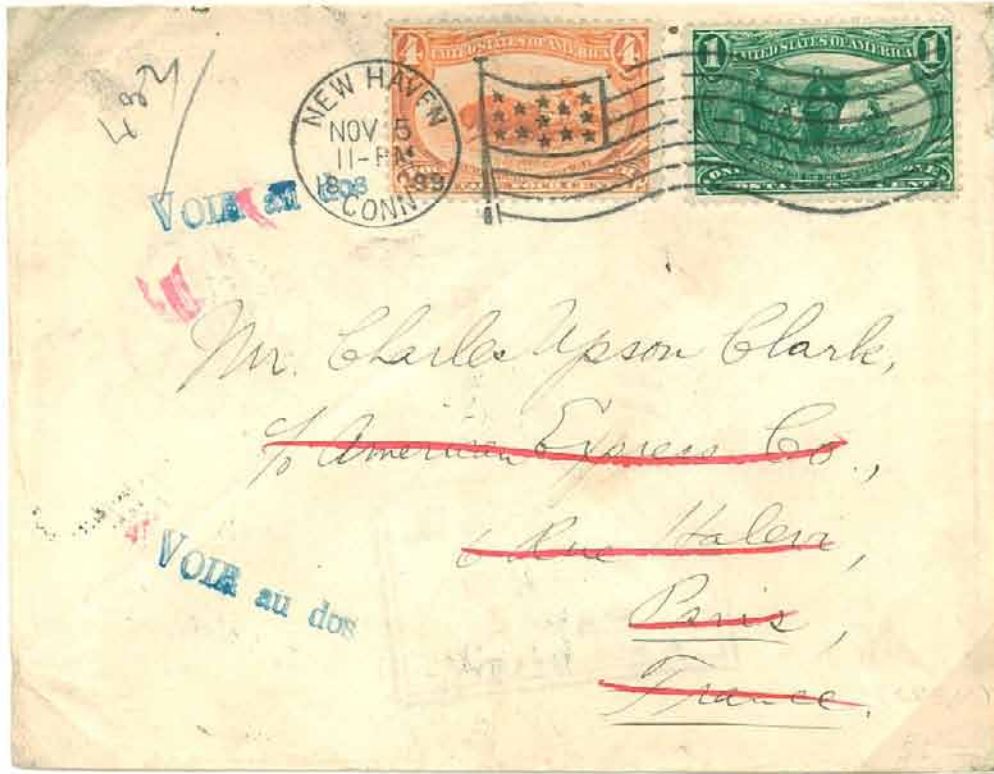 4 UNITED STATES OF AMERICA 4
1 UNITED STATES OF AMERICA 1
NEW HAVEN
NOV 5
11-PM
CONN.
VOIR au dos
Mr. Charles Upson Clark,
c/o American Express Co.,
6 Rue Halevy,
Paris,
France.
VOIR au dos